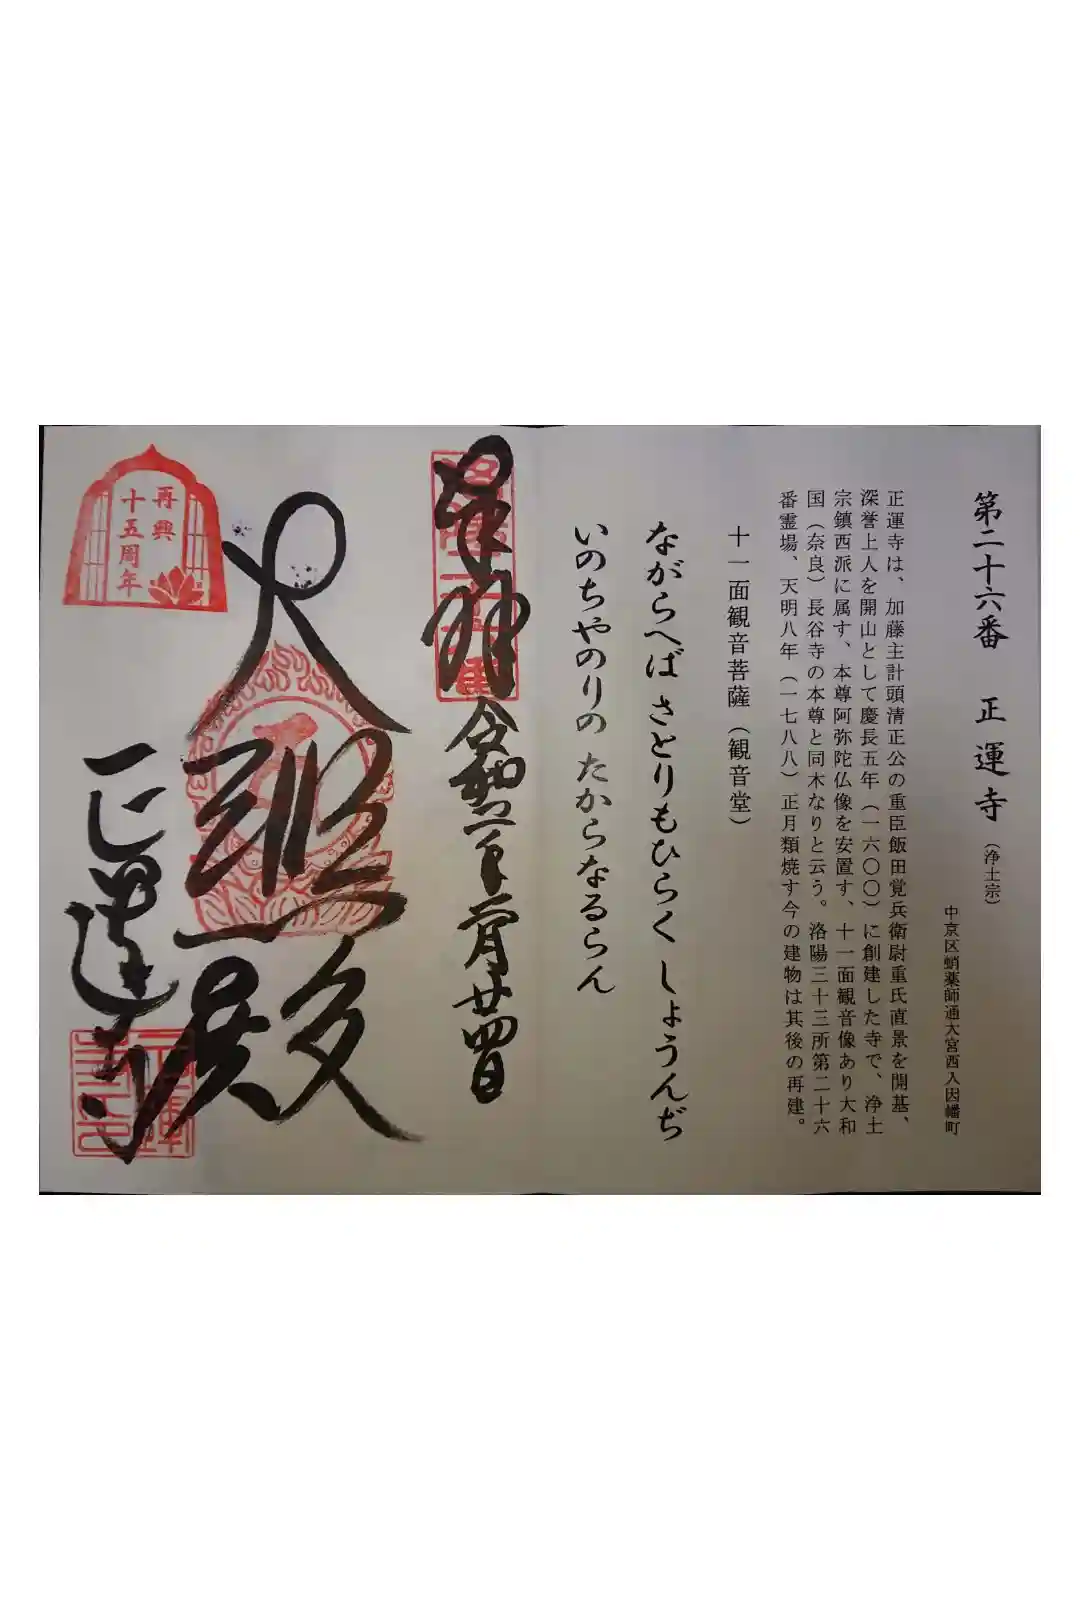 第二十六番 正運寺(浄土宗)
中京区蛸薬師通大宮西入因幡町
正運寺は、加藤主計頭清正公の重臣飯田覚兵衛尉重氏直景を開基、
深誉上人を開山として慶長五年(一六〇〇)に創建した寺で、浄土
宗鎮西派に属す、本尊阿弥陀仏像を安置す、十一面観音像あり大和
国(奈良)長谷寺の本尊と同木なりと云う。洛陽三十三所第二十六
番霊場、天明八年(一七八八)正月類焼す今の建物は其後の再建。
十一面観音菩薩(観音堂)
ながらへば さとりもひらく しょうんぢ
いのちやのりの たからなるらん
奉拝
令和二年 月廿四日
大悲殿
正運寺
再興
十五周年